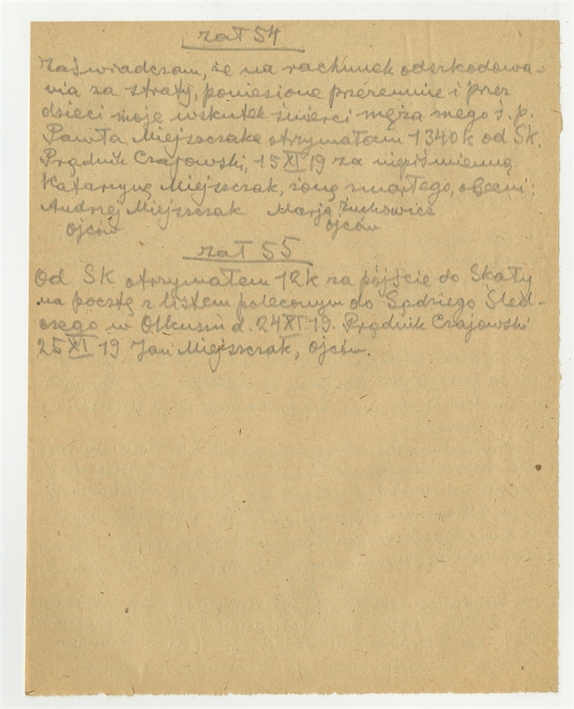 zał 54
Zaświadczam, że na rachunek odszkodowa-
nia za straty, poniesione przezemnie i przez
dzieci moje wskutek śmierci męża mego ś. p.
Pawła Miejszczaka otrzymałam 1340 k od SK.
Prądnik Czajowski, 15 XI 19 za niepiśmienną
Katarzynę Miejszczak, żonę zmarłego, obecni:
Andrzej Miejszczak Marja Żuchowicz
Ojców Ojców
zał 55
Od SK otrzymałem 12 k za pójście do Skały
na pocztę z listem poleconym do Sędziego Śled-
czego w Olkuszu d. 24 XI 19. Prądnik Czajowski
25 XI 19 Jan Miejszczak, Ojców.